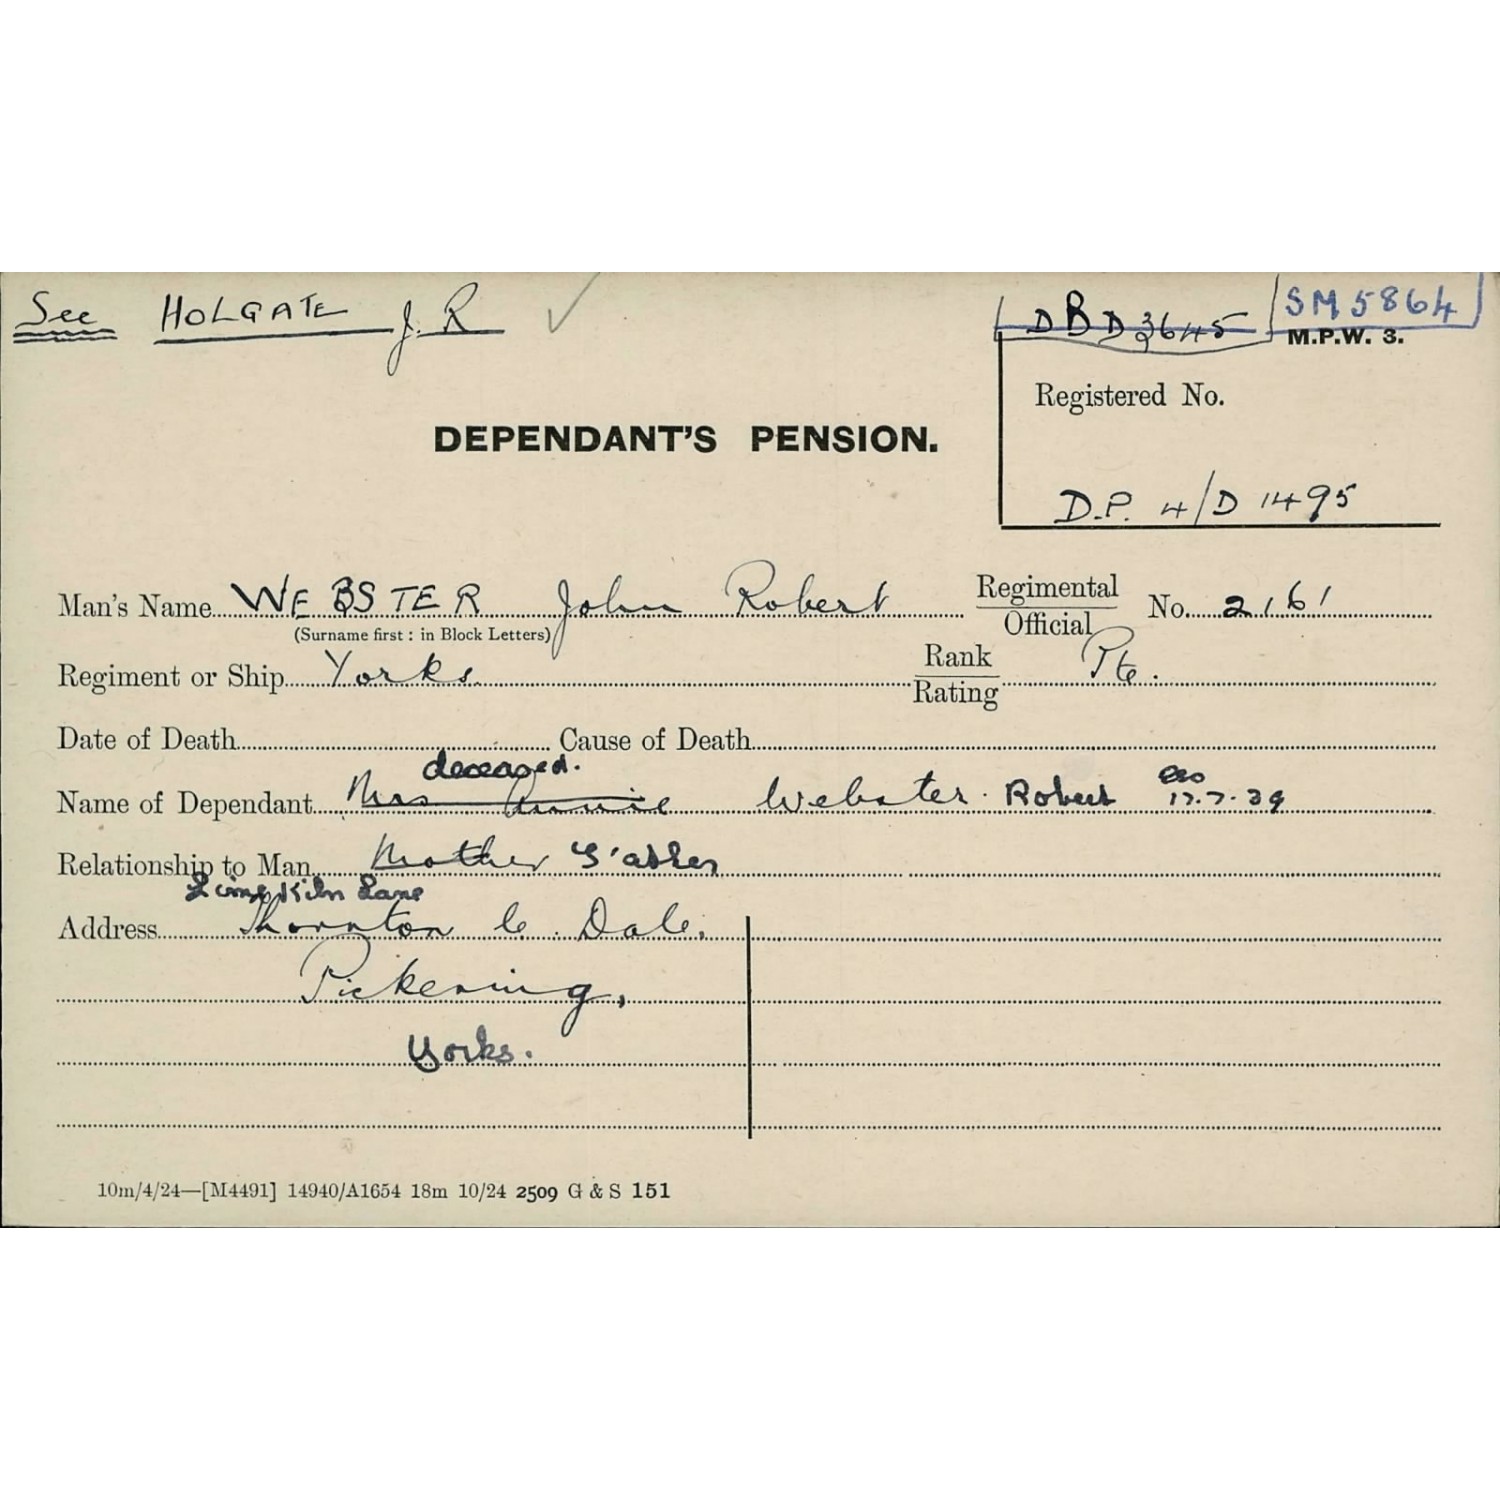 See HOLGATE J. R DBD 3645 SM 5864
M.P.W. 3.
Registered No.
DEPENDANT'S PENSION.
D.P. 4/D 1495
Man's Name WEBSTER John Robert Regimental Official No. 2161
(Surname first : in Block Letters)
Regiment or Ship Yorks Rank Rating Pte.
Date of Death Cause of Death
deceased.
Name of Dependant Mrs Annie Webster. Robert 17.7.39
Relationship to Man Mother Father
Lime Kiln Lane
Address Thornton le Dale,
Pickering,
Yorks.
10m/4/24—[M4491] 14940/A1654 18m 10/24 2509 G & S 151